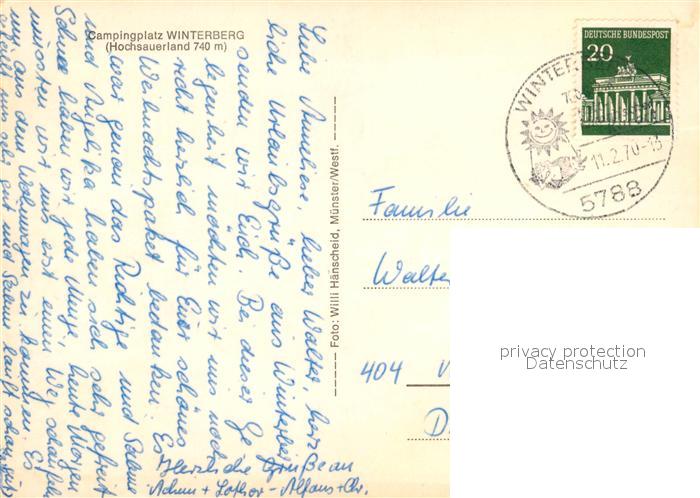 Campingplatz WINTERBERG
(Hochsauerland 740 m)
Liebe Anneliese, lieber Walter, herz
liche Urlaubsgrüße aus Winterberg
senden wir Euch. Bei dieser Ge
legenheit möchten wir uns noch
recht herzlich für Euer schönes
Weihnachtspaket bedanken. Es
war genau das Richtige und Sabine
und Angelika haben sich sehr gefreut
Schnee haben wir jede Menge, heute Morgen
mussten wir uns erst einen Weg schaufeln
um aus dem Wohnwagen zu kommen. Es
gefällt uns sehr gut und Sabine läuft schon gut
Herzliche Grüße an
+ Lothar - Alfons + Chr.
Foto: Willi Hänscheid, Münster/Westf.
DEUTSCHE BUNDESPOST
20
WINTER
11.2.70-13
5788
Familie
Walter
404
privacy protection
Datenschutz